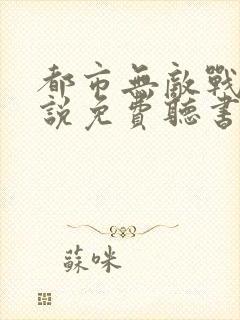 都市無敵戰
說免費聽書
蘇咪